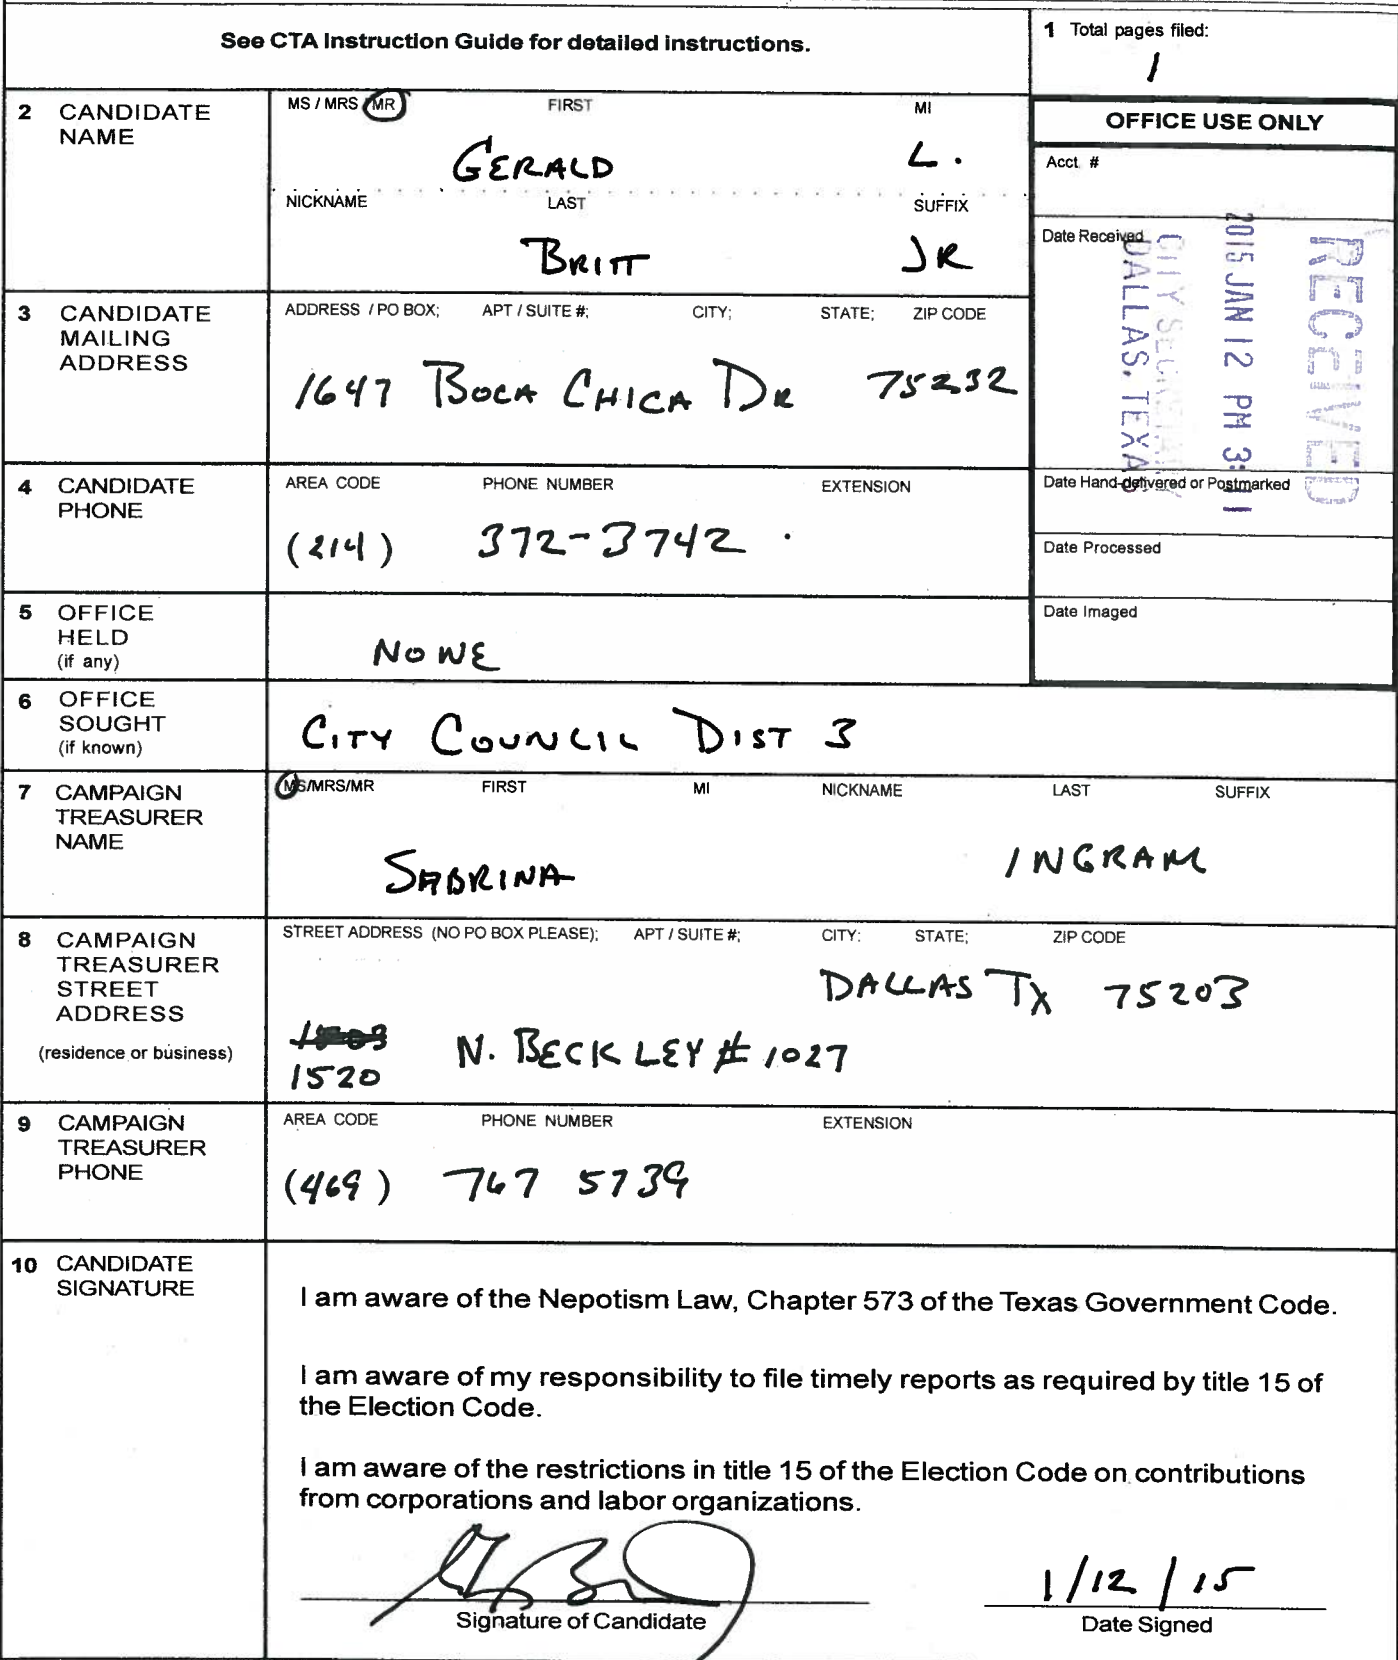 See CTA Instruction Guide for detailed instructions.
1 Total pages filed:
1
2 CANDIDATE NAME
MS / MRS / MR FIRST MI
GERALD L.
NICKNAME LAST SUFFIX
BRITT JR
OFFICE USE ONLY
Acct. #
Date Received
RECEIVED
2015 JAN 12 PM 3:11
CITY SECRETARY
DALLAS, TEXAS
Date Hand-delivered or Postmarked
Date Processed
Date Imaged
3 CANDIDATE MAILING ADDRESS
ADDRESS / PO BOX; APT / SUITE #; CITY; STATE; ZIP CODE
1647 BOCA CHICA DR 75232
4 CANDIDATE PHONE
AREA CODE PHONE NUMBER EXTENSION
(214) 372-3742
5 OFFICE HELD
(if any)
NONE
6 OFFICE SOUGHT
(if known)
CITY COUNCIL DIST 3
7 CAMPAIGN TREASURER NAME
MS/MRS/MR FIRST MI NICKNAME LAST SUFFIX
SABRINA INGRAM
8 CAMPAIGN TREASURER STREET ADDRESS
(residence or business)
STREET ADDRESS (NO PO BOX PLEASE); APT / SUITE #; CITY; STATE; ZIP CODE
DALLAS TX 75203
1520 N. BECKLEY # 1027
9 CAMPAIGN TREASURER PHONE
AREA CODE PHONE NUMBER EXTENSION
(469) 767 5739
10 CANDIDATE SIGNATURE
I am aware of the Nepotism Law, Chapter 573 of the Texas Government Code.
I am aware of my responsibility to file timely reports as required by title 15 of
the Election Code.
I am aware of the restrictions in title 15 of the Election Code on contributions
from corporations and labor organizations.
1/12/15
Signature of Candidate Date Signed